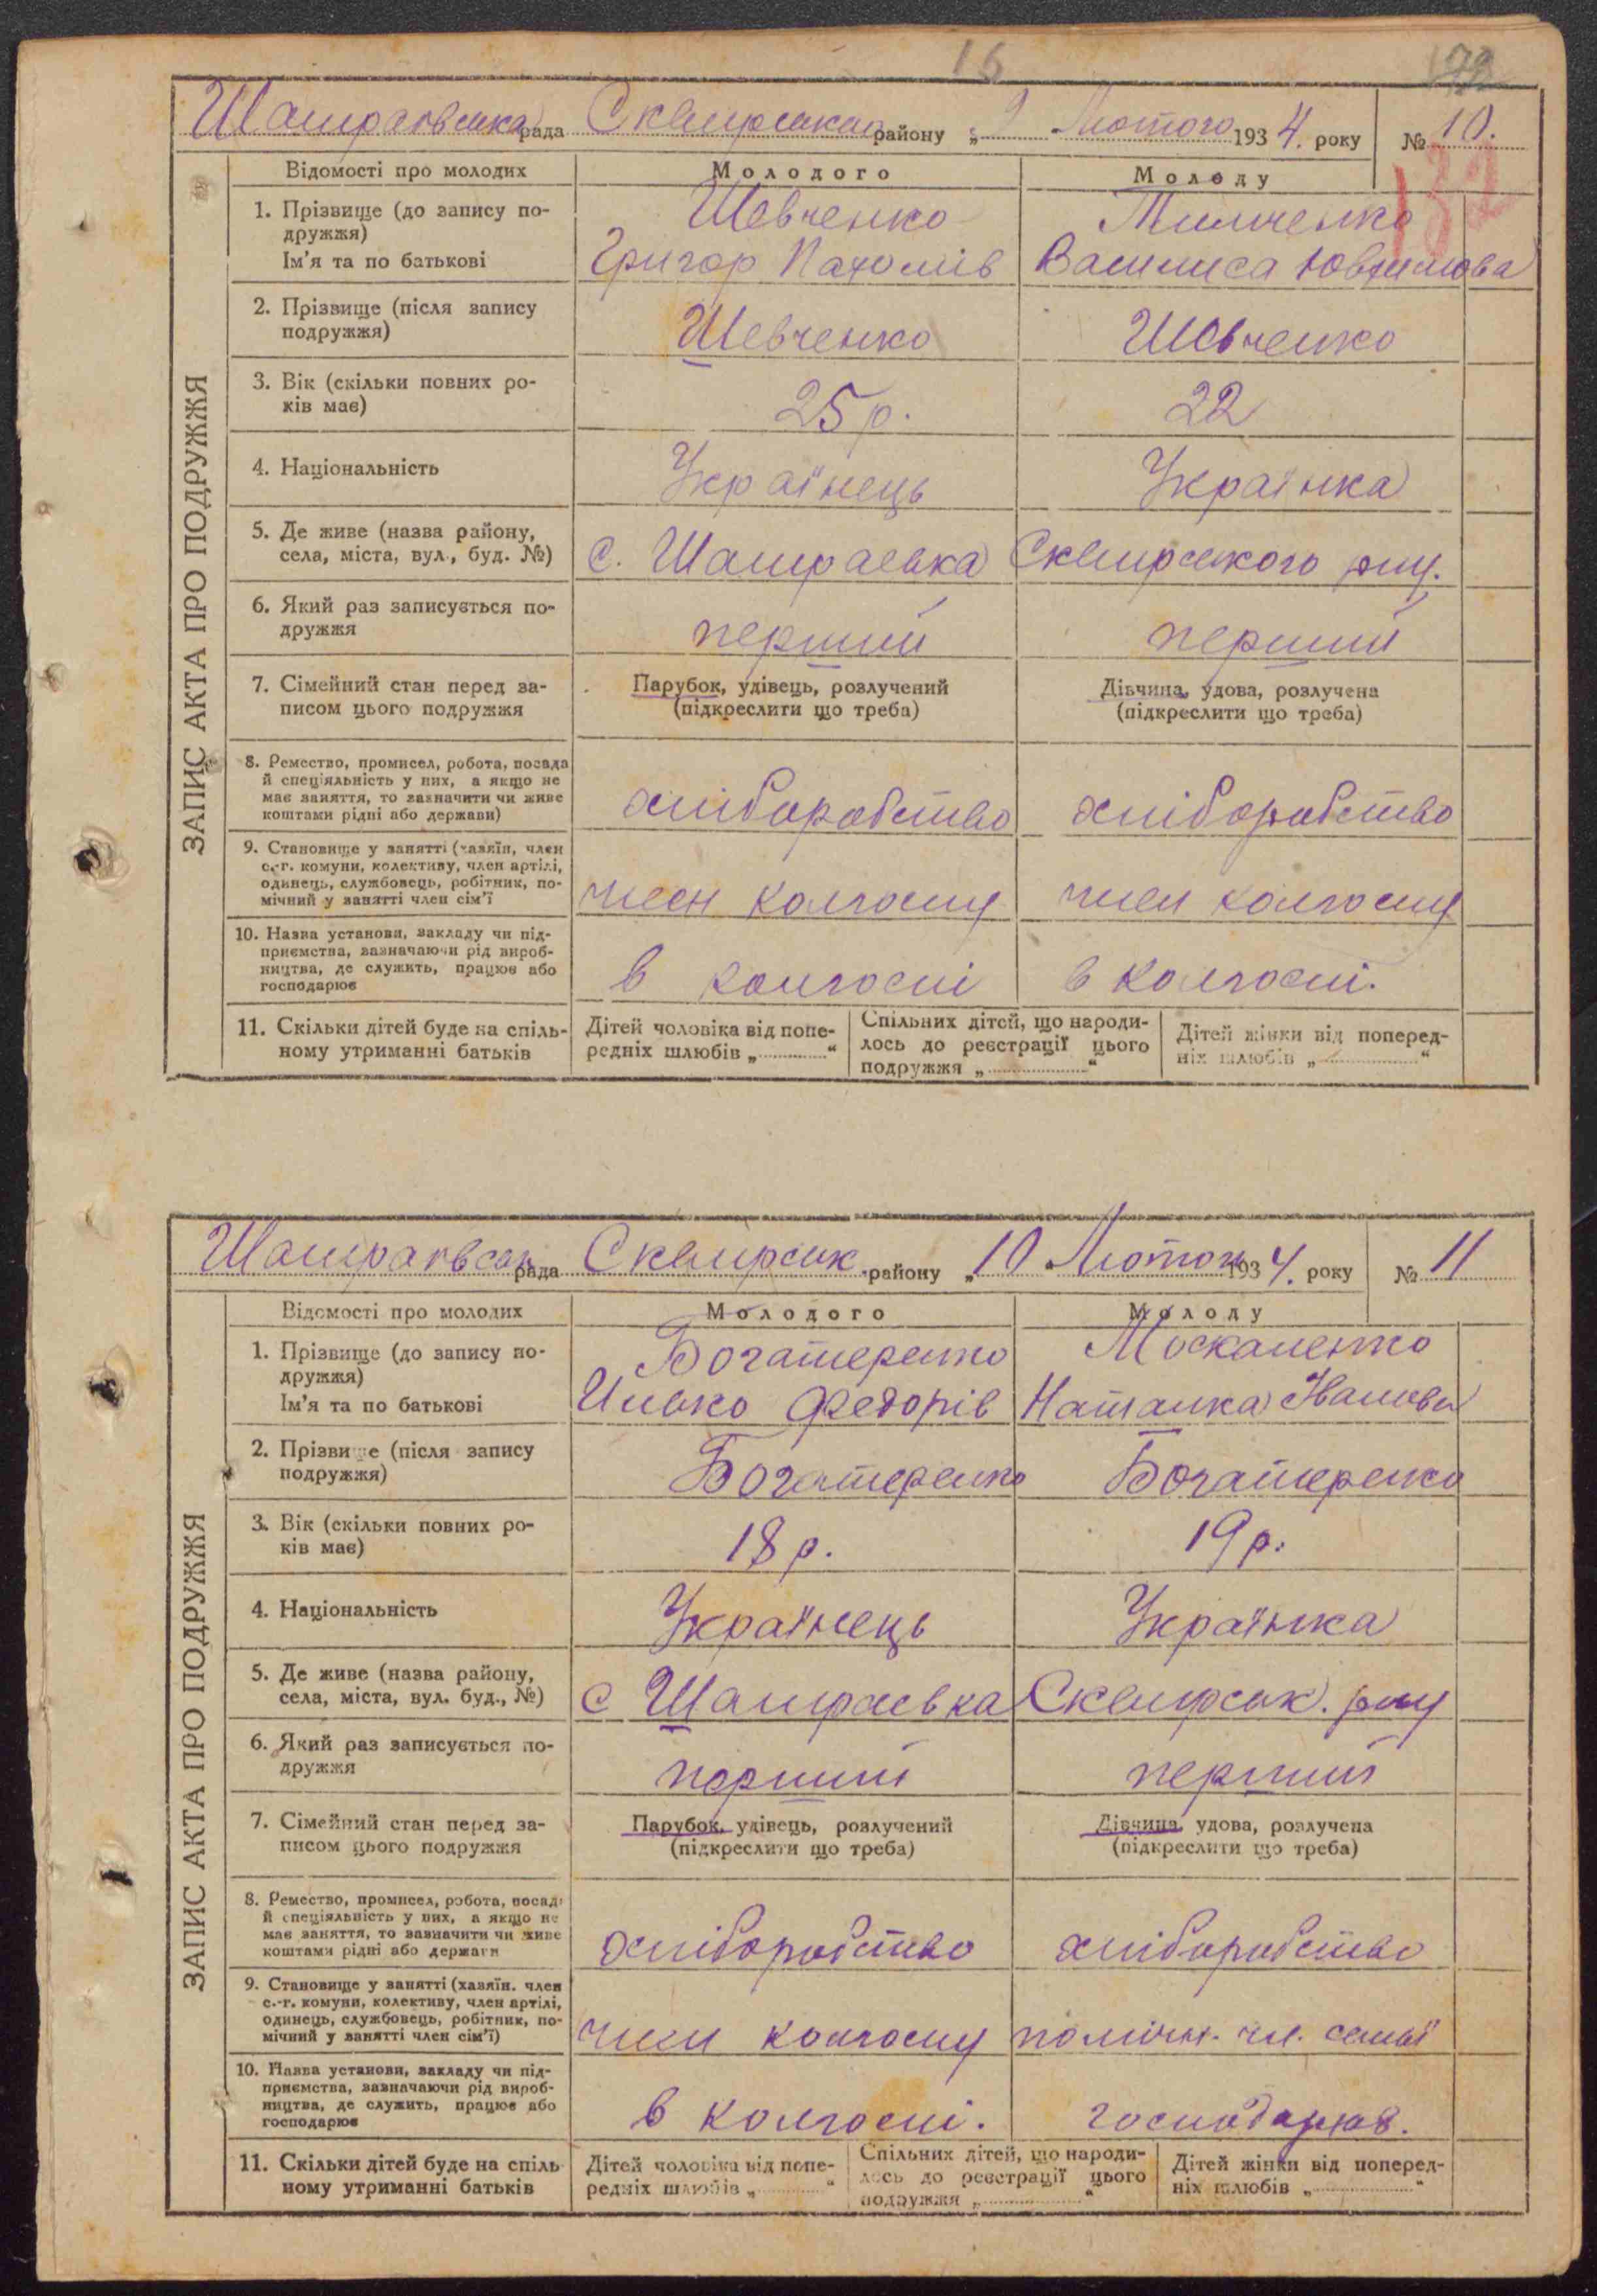 16
132
Шамраєвська рада Сквирськаго району „9 Лютого 1934. року № 10.
ЗАПИС АКТА ПРО ПОДРУЖЖЯ
Відомості про молодих Молодого Молоду
1. Прізвище (до запису по- Шевченко
дружжя)
Ім'я та по батькові Григор Пахомів Василиса Ювхимова
2. Прізвище (після запису
подружжя) Шевченко Шевченко
3. Вік (скільки повних ро-
ків має) 25 р. 22
4. Національність Українець Українка
5. Де живе (назва району,
села, міста, вул., буд. №) С. Шамраевка Сквирського р-ну.
6. Який раз записується по-
дружжя перший перший
7. Сімейний стан перед за- Парубок, удівець, розлучений Дівчина, удова, розлучена
писом цього подружжя (підкреслити що треба) (підкреслити що треба)
8. Ремество, промисел, робота, посада
й спеціяльність у них, а якщо не
має заняття, то зазначити чи живе
коштами рідні або держави) хліборобство хліборобство
9. Становище у занятті (хазяїн, член
с.-г. комуни, колективу, член артілі,
одинець, службовець, робітник, по-
мічний у занятті член сім'ї член колгоспу член колгоспу
10. Назва установи, закладу чи під-
приємства, зазначаючи рід вироб-
ництва, де служить, працює або
господарює в колгоспі в колгоспі.
11. Скільки дітей буде на спіль-
ному утриманні батьків
Дітей чоловіка від попе-
редніх шлюбів „ “
Спільних дітей, що народи-
лось до реєстрації цього
подружжя „ “
Дітей жінки від поперед-
ніх шлюбів „ “
Шамраєвськ рада Сквирськ. району „10 Лютого 1934. року № 11
ЗАПИС АКТА ПРО ПОДРУЖЖЯ
Відомості про молодих Молодого Молоду
1. Прізвище (до запису по- Богатеренко Москаленко
дружжя)
Ім'я та по батькові Илько Федорів Наталка Іванова
2. Прізвище (після запису
подружжя) Богатеренко Богатеренко
3. Вік (скільки повних ро-
ків має) 18 р. 19 р.
4. Національність Українець Українка
5. Де живе (назва району,
села, міста, вул. буд., №) С Шамраєвка Сквирськ. р-ну
6. Який раз записується по-
дружжя перший перший
7. Сімейний стан перед за- Парубок, удівець, розлучений Дівчина, удова, розлучена
писом цього подружжя (підкреслити що треба) (підкреслити що треба)
8. Ремество, промисел, робота, посада
й спеціяльність у них, а якщо не
має заняття, то зазначити чи живе
коштами рідні або держави хліборобство хліборобство
9. Становище у занятті (хазяїн. член
с.-г. комуни, колективу, член артілі,
одинець, службовець, робітник, по-
мічний у занятті член сім'ї) член колгоспу помічн. чл. семьї
10. Назва установи, закладу чи під-
приємства, зазначаючи рід вироб-
ництва, де служить, працює або
господарює в колгоспі. господарює.
11. Скільки дітей буде на спіль
ному утриманні батьків
Дітей чоловіка від попе-
редніх шлюбів „ “
Спільних дітей, що народи-
лось до реєстрації цього
подружжя „ “
Дітей жінки від поперед-
ніх шлюбів „ “